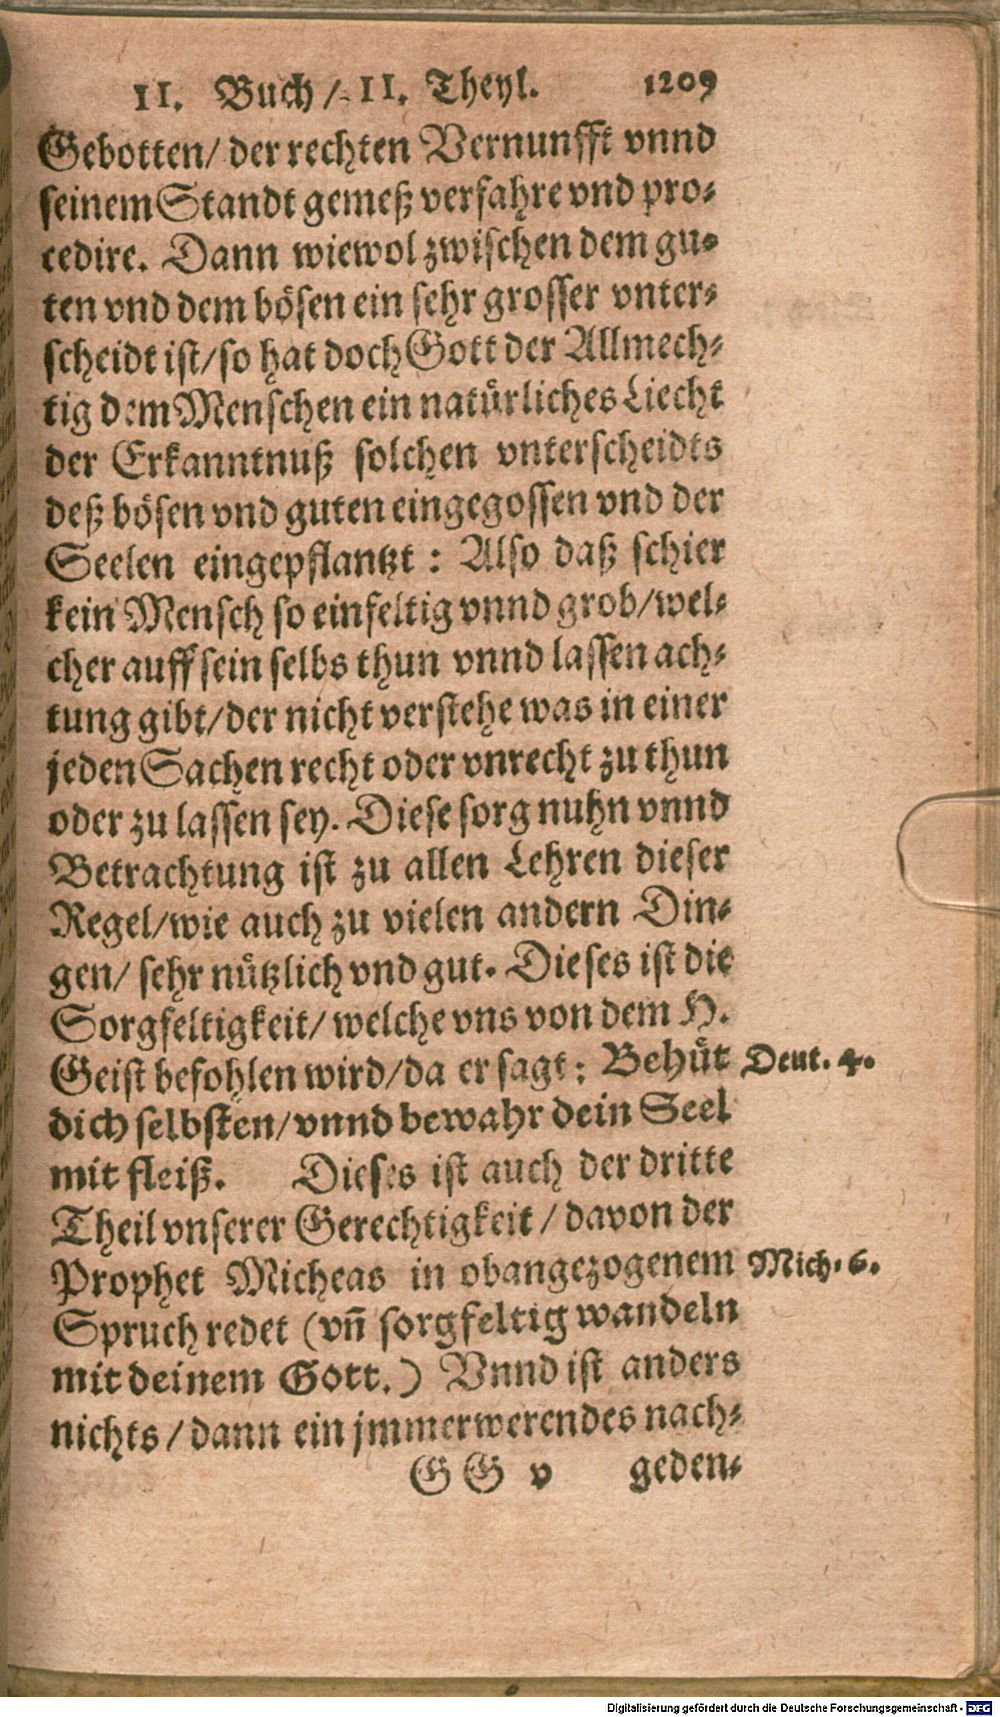 II. Buch / II. Theyl. 1209
Gebotten/ der rechten Vernunfft vnnd
seinem Standt gemeß verfahre vnd pro-
cedire. Dann wiewol zwischen dem gu-
ten vnd dem bösen ein sehr grosser vnter-
scheidt ist/ so hat doch Gott der Allmech-
tig dem Menschen ein natürliches Liecht
der Erkanntnuß solchen vnterscheidts
deß bösen vnd guten eingegossen vnd der
Seelen eingepflantzt : Also daß schier
kein Mensch so einfeltig vnnd grob/ wel-
cher auff sein selbs thun vnnd lassen ach-
tung gibt/ der nicht verstehe was in einer
jeden Sachen recht oder vnrecht zu thun
oder zu lassen sey. Diese sorg nuhn vnnd
Betrachtung ist zu allen Lehren dieser
Regel/ wie auch zu vielen andern Din-
gen/ sehr nützlich vnd gut. Dieses ist die
Sorgfeltigkeit/ welche vns von dem H.
Geist befohlen wird/ da er sagt : Behüt Deut. 4.
dich selbsten/ vnnd bewahr dein Seel
mit fleiß. Dieses ist auch der dritte
Theil vnserer Gerechtigkeit / davon der
Prophet Micheas in obangezogenem Mich. 6.
Spruch redet (vñ sorgfeltig wandeln
mit deinem Gott.) Vnnd ist anders
nichts / dann ein jmmerwerendes nach-
GG v geden-
Digitalisierung gefördert durch die Deutsche Forschungsgemeinschaft - DFG